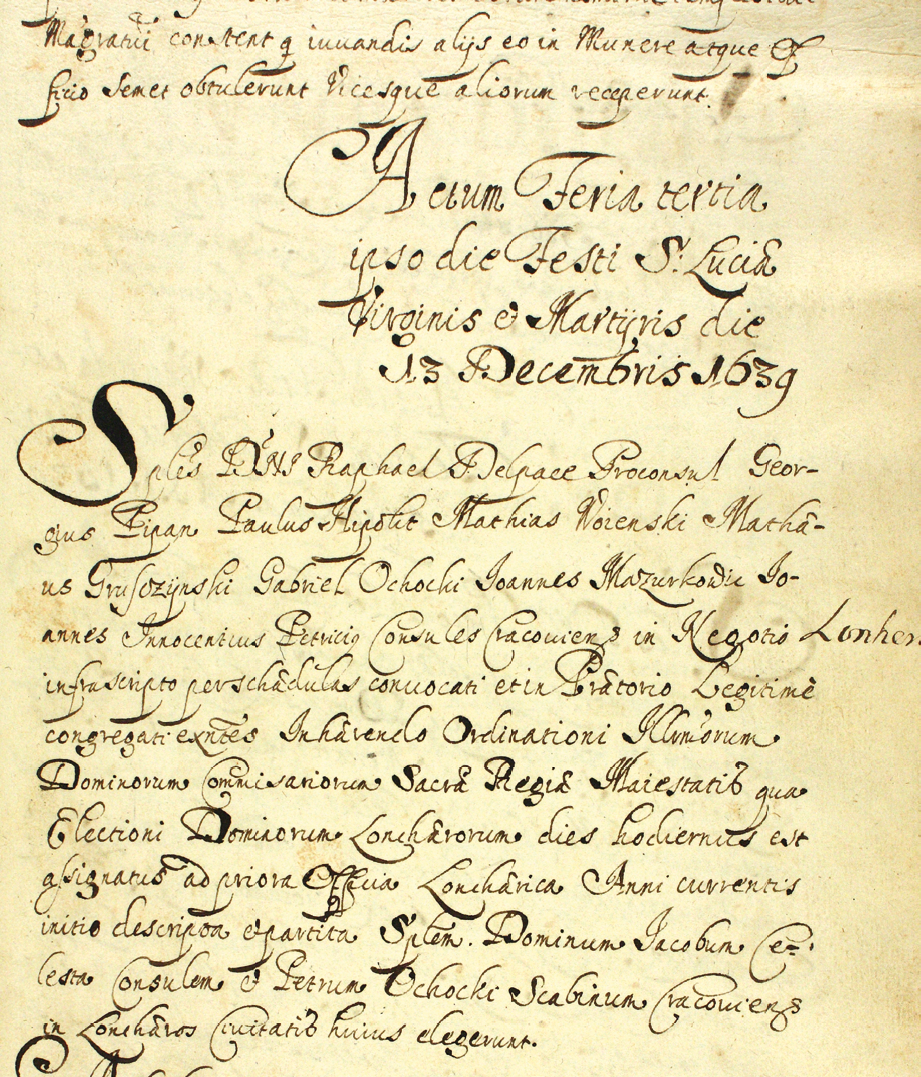 Magratui constent q iuuandis alijs eo in Munere atque Of
ficio Semet obtulerunt Vicesque aliorum receperunt.
Actum Feria tertia
ipso die Festi S: Luciæ
Virginis et Martyris die
13 Decembris 1639
Sples DNI Raphael Delpace Proconsul Geor-
gius Pipan Paulus Hipolit Mathias Voienski Mathæ-
us Gruszynski Gabriel Ochocki Joannes Mazurkowic Jo-
annes Innocentius Petricius Consules Cracouiens in Negotio Lonher
infrascripto per schædulas conuocati et in Prætorio Legitimè
congregati exntes Inhærendo Ordinationi Illmorum
Dominorum Commisariorum Sacræ Regiæ Maiestatis qua
Electioni Dominorum Lonchærorum dies hodiernus est
assignatus ad priora Officia Lonchærica Anni currentis
initio descripta et partita Splem. Dominum Jacobum Ce-
lesta Consulem et Petrum Ochocki Scabinum Cracouiens
in Lonchæros Ciuitatis huius elegerunt.